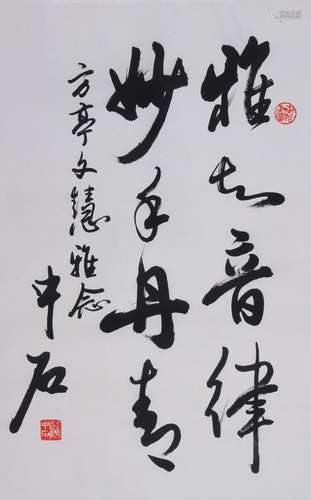 雅知音律
妙手丹青
方亭文慧雅念
中石